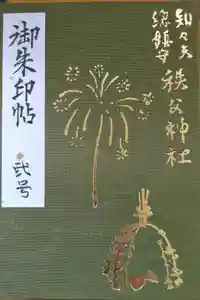 知々夫
総鎮守
秩父神社
御朱印帖
弐号